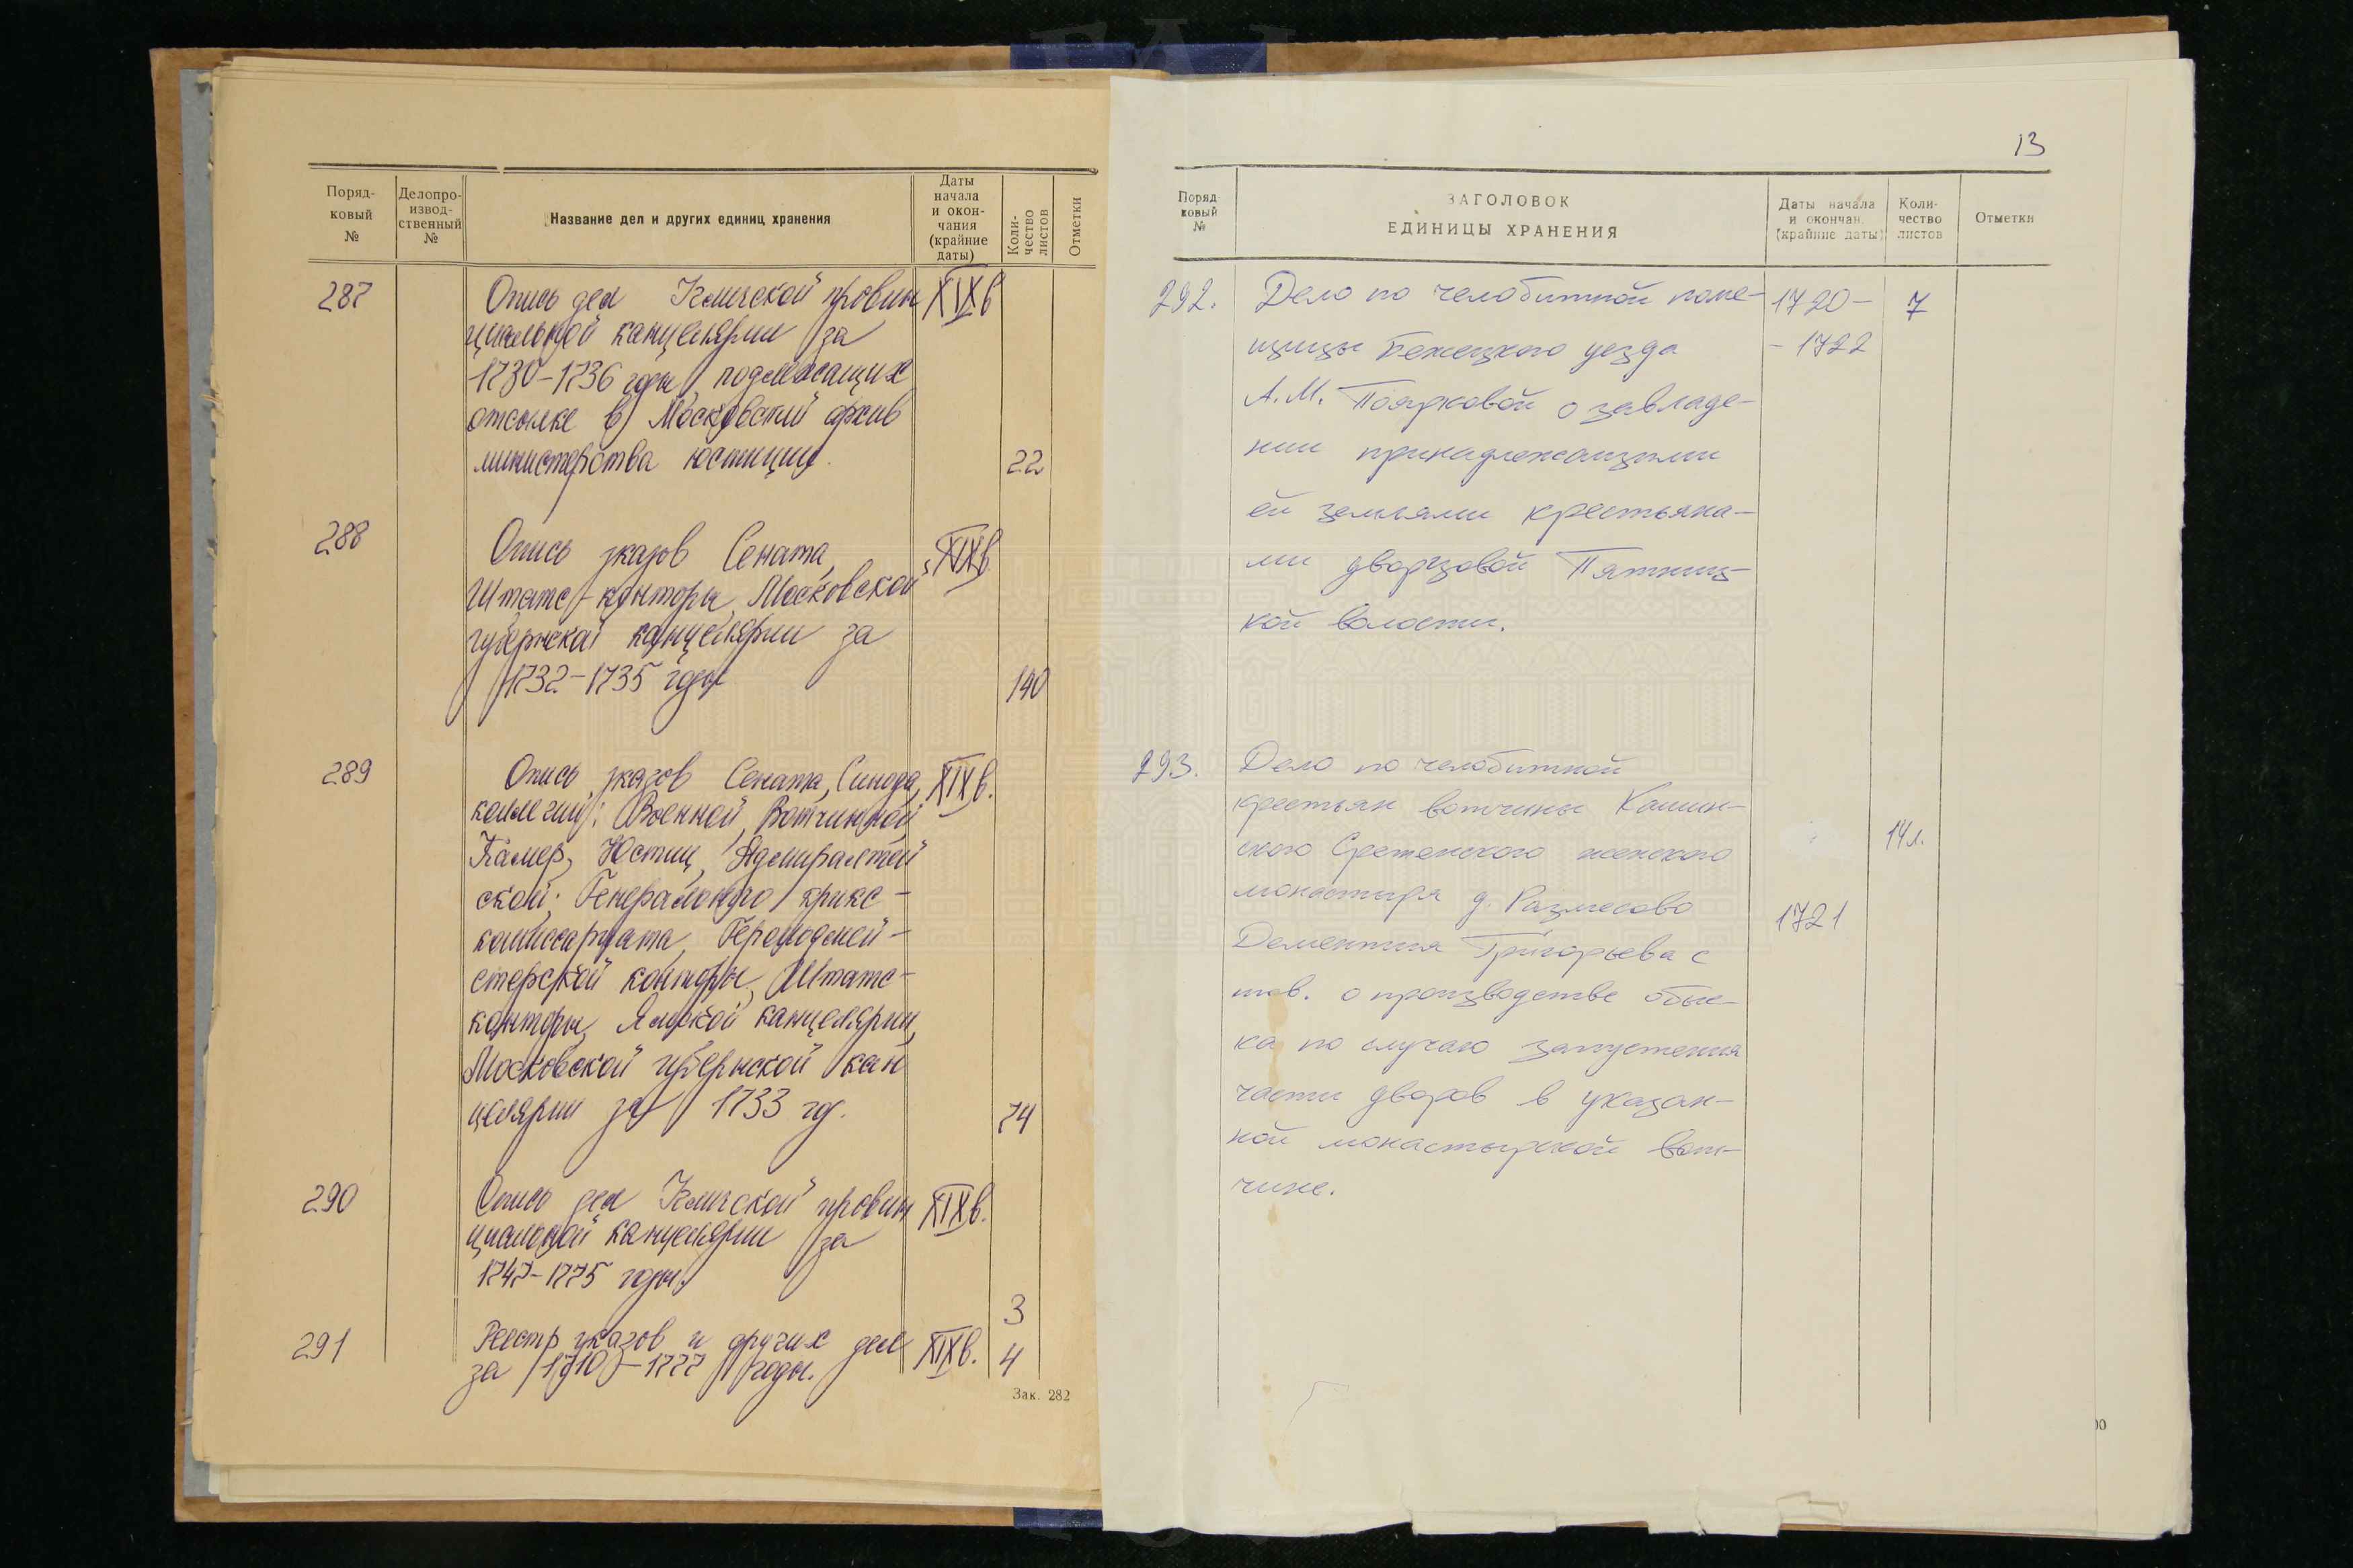 Поряд-
ковый
№
Делопро-
извод-
ственный
№
Название дел и других единиц хранения
Даты
начала
и окон-
чания
(крайние
даты)
Коли-
чество
листов
Отметки
287
Опись дел Углической провин
XIX в
циальной канцелярии за
1730-1736 годы, подлежащих
отсылке в Московский архив
министерства юстиции.
22
288
Опись указов Сената,
XIX в
Штатс-конторы, Московской
губернской канцелярии за
1732-1735 годы
140
289
Опись указов Сената, Синода,
XIX в.
коллегий: Военной, Вотчинной,
Камер, Юстиц, Адмиралтей
ской; Генерального крикс-
комиссариата, Герольдмей-
стерской конторы, Штатс-
конторы, Ямской канцелярии,
Московской губернской кан
целярии за 1733 год.
74
290
Опись дел Углической провин
XIX в.
циальной канцелярии за
1747-1775 годы.
3
291
Реестр указов и других дел
XIX в.
за 1710-1777 годы.
4
Зак. 282
13
Поряд-
ковый
№
ЗАГОЛОВОК
ЕДИНИЦЫ ХРАНЕНИЯ
Даты начала
и окончан.
(крайние даты)
Коли-
чество
листов
Отметки
292.
Дело по челобитной поме-
1720-
7
щицы Бежецкого уезда
- 1722
А.М. Поярковой о завладе-
нии принадлежащими
ей землями крестьяна-
ми дворцовой Пятниц-
кой волости.
293.
Дело по челобитной
крестьян вотчины Кашин-
14л.
ского Сретенского женского
монастыря д.
1721
Дементия Григорьева с
тов. о производстве обыс-
ка по случаю запустения
части дворов в указан-
ной монастырской вот-
чине.